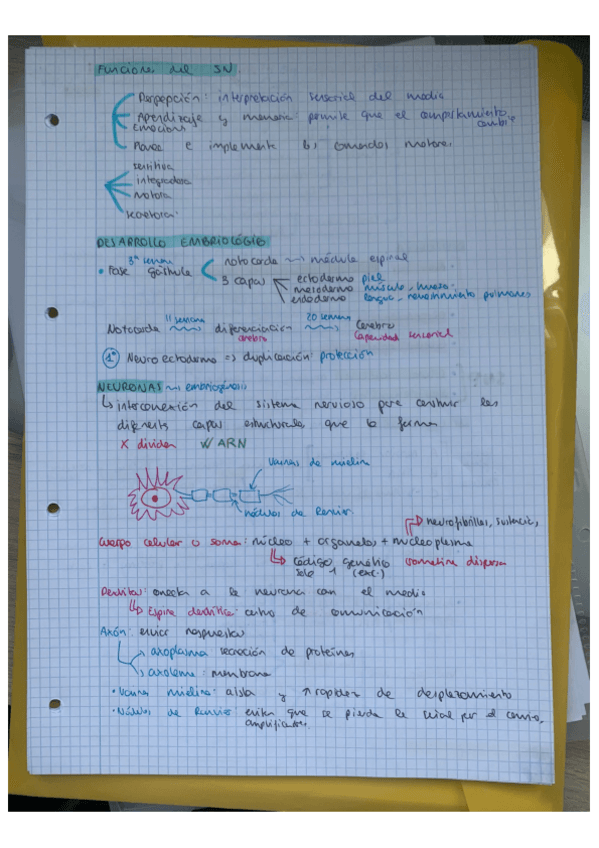 Funciones del SN
Percepción: interpretación sensorial del medio
Aprendizaje y memoria: permite que el comportamiento cambie
emociones
Planea e implementa los comandos motores
sensitiva
integradora
Motora
DESARROLLO EMBRIOLÓGIO
3ª semana
• Fase gástrula
notocorda ~> médula espinal
3 capas
ectodermo piel
mesodermo músculo, hueso
endodermo lengua, revestimiento pulmones
11 semana 20 semana
Notocorda diferenciación cerebro
cerebro Capacidad sensorial
1º Neuro ectodermo => duplicación: protección
NEURONAS ~> embriogénesis
↳ interconexión del sistema nervioso para construir las
diferents capas estructurales que lo forman
X dividen W ARN
Vainas de mielina
nódulos de Ranvier
neurofibrillas, sustancia,
Cuerpo celular o soma: núcleo + organelos + nucleoplasma
↳ Código genético cromatina dispersa
solo 1 (exc.)
Dendritas: conecta a la neurona con el medio
↳ Espina dendrítica: centro de comunicación
Axón: enviar respuestas
axoplasma secreción de proteínas
axolema: membrana
• Vaina mielina: aisla y ↑ rapidez de desplazamiento
• Nódulos de Ranvier evitan que se pierda la señal por el camino,
amplificador